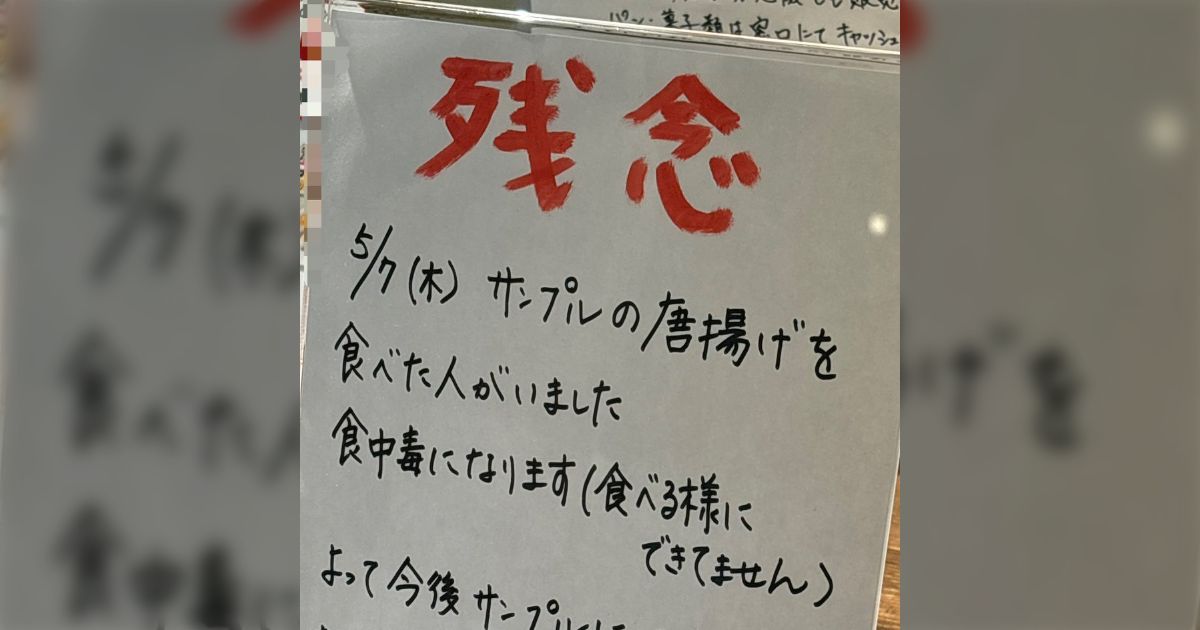 パン・菓子類は窓口にてキャッシュ
残念
5/7(木) サンプルの唐揚げを
食べた人がいました
食中毒になります(食べる様に
できてません)
よって今後サンプルに